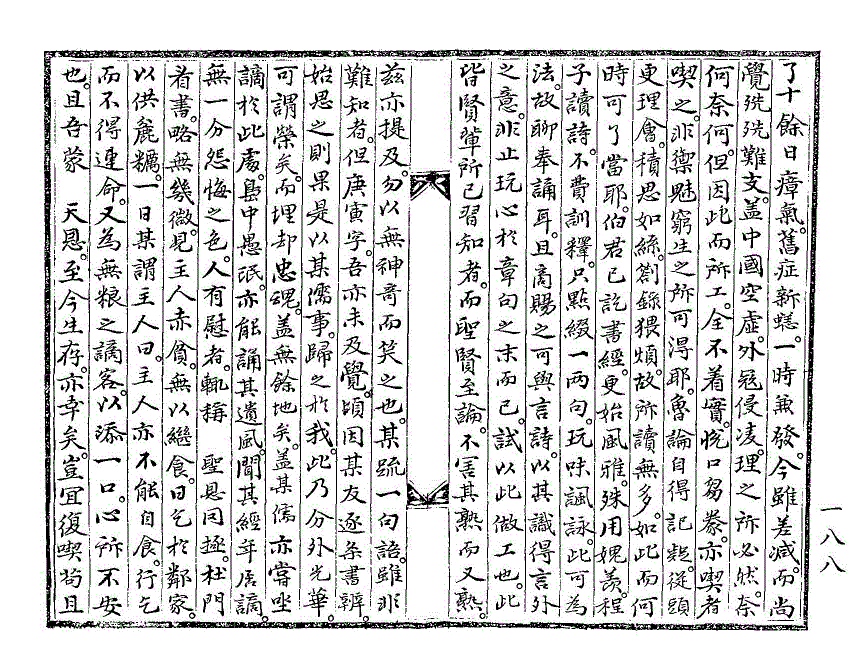 了十餘日瘴氣。舊症新𧏮。一時兼發。今雖差減。而尚
覺㱡㱡難支。盖中國空虛。外冦侵凌。理之所必然。奈
何奈何。但因此而所工。全不着實。悅口芻豢。亦喫者
喫之。非禦魅窮生之所可得耶。魯論自得記疑。從頭
更理會。積思如絲。劄錄猥煩。故所讀無多。如此而何
時可了當耶。伯君已訖書經。更始風雅。殊用媿羨。程
子讀詩。不費訓釋。只點綴一兩句。玩味諷詠。此可爲
法。故聊奉誦耳。且商賜之可與言詩。以其識得言外
之意。非止玩心於章句之末而已。試以此做工也。此
皆賢軰所已習知者。而聖賢至論。不害其熟而又熟。
玆亦提及。勿以無神奇而笑之也。某䟽一句語。雖非
難知者。但庚寅字。吾亦未及覺。頃因某友逐条書辨。
始思之則果是以某儒事。歸之於我。此乃分外光華。
可謂榮矣。而埋却忠魂。盖無餘地矣。盖某儒亦嘗坐
謫於此處。島中愚氓。亦能誦其遺風。聞其經年居謫。
無一分怨悔之色。人有慰者。輒稱 聖恩罔極。杜門
看書。略無幾微。見主人赤貧。無以繼食。日乞於鄰家。
以供麁糲。一日某謂主人曰。主人亦不能自食。行乞
而不得連命。又爲無粮之謫客。以添一口。心所不安
也。且吾蒙 天恩。至今生存。亦幸矣。豈宜復喫苟且
一八八